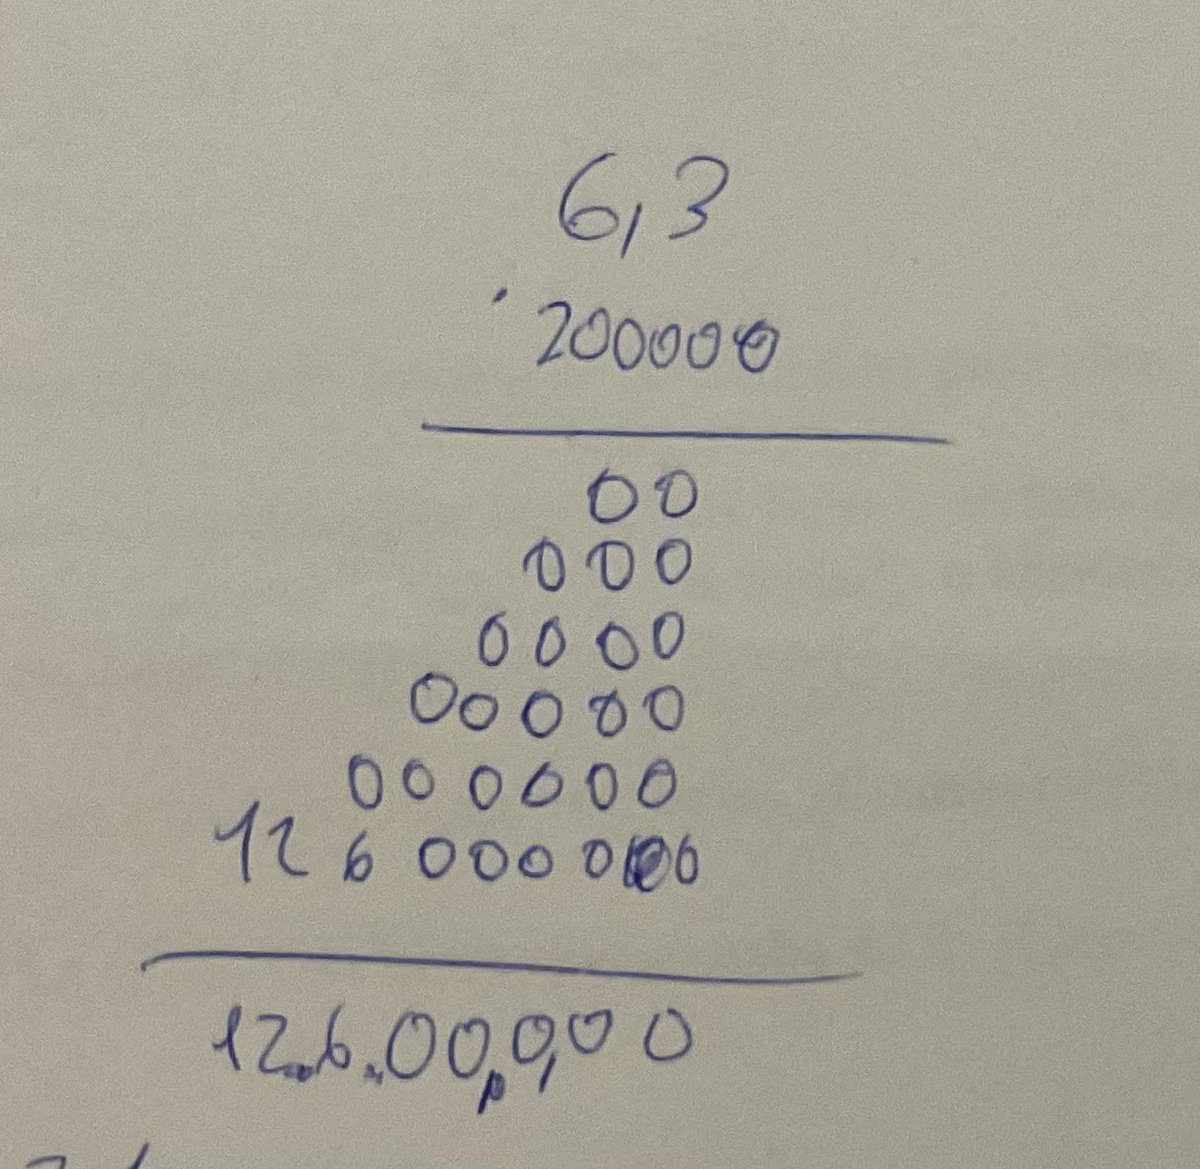 6,3
· 200000
00
000
0000
00000
000000
12600000
12.6.00,0,00